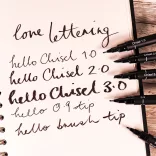 love lettering
hello Chisel 1.0
hello Chisel 2.0
hello Chisel 3.0
hello 0.9 tip
hello brush tip